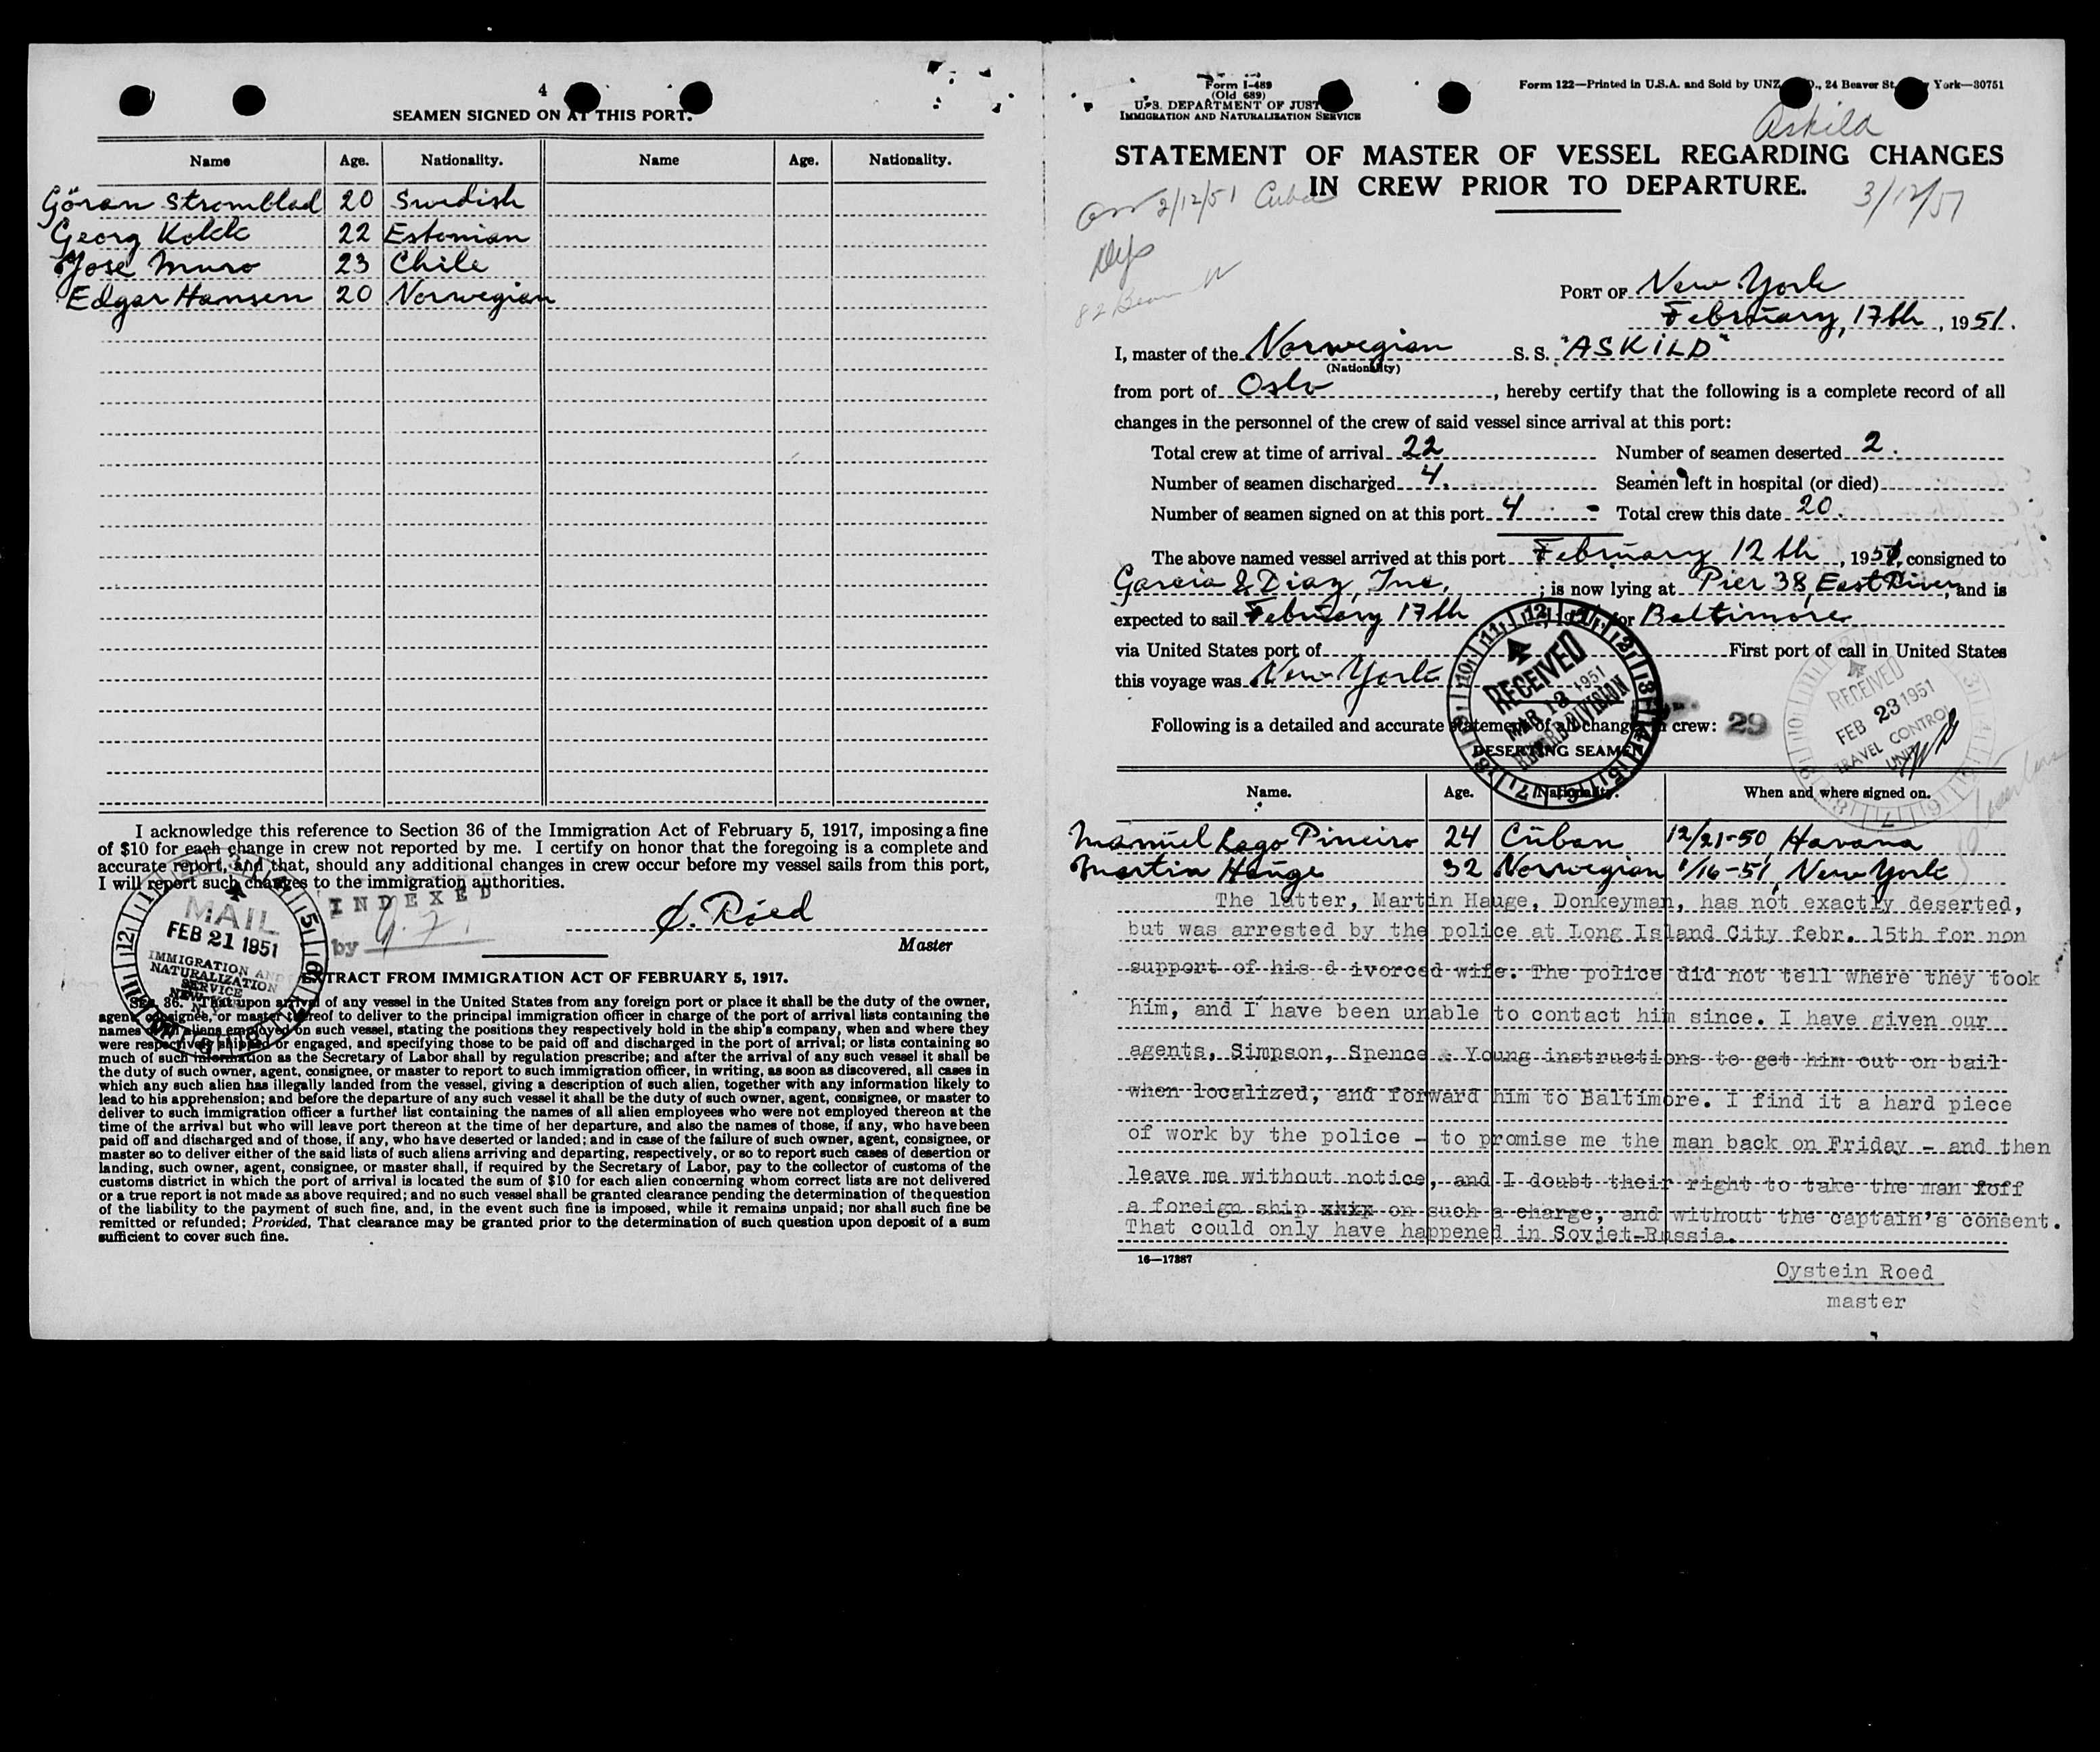 4
SEAMEN SIGNED ON AT THIS PORT.
Name Age. Nationality. Name Age. Nationality.
Göran Stromblad 20 Swedish
Georg Kolk 22 Estonian
Jose Muro 23 Chile
Edgar Hansen 20 Norwegian
I acknowledge this reference to Section 36 of the Immigration Act of February 5, 1917, imposing a fine
of $10 for each change in crew not reported by me. I certify on honor that the foregoing is a complete and
accurate report, and that, should any additional changes in crew occur before my vessel sails from this port,
I will report such changes to the immigration authorities.
INDEXED
by
Ø. Röed
Master
MAIL
FEB 21 1951
IMMIGRATION AND
NATURALIZATION
SERVICE
EXTRACT FROM IMMIGRATION ACT OF FEBRUARY 5, 1917.
SEC. 36. That upon arrival of any vessel in the United States from any foreign port or place it shall be the duty of the owner,
agent, consignee, or master thereof to deliver to the principal immigration officer in charge of the port of arrival lists containing the
names of all aliens employed on such vessel, stating the positions they respectively hold in the ship's company, when and where they
were respectively shipped or engaged, and specifying those to be paid off and discharged in the port of arrival; or lists containing so
much of such information as the Secretary of Labor shall by regulation prescribe; and after the arrival of any such vessel it shall be
the duty of such owner, agent, consignee, or master to report to such immigration officer, in writing, as soon as discovered, all cases in
which any such alien has illegally landed from the vessel, giving a description of such alien, together with any information likely to
lead to his apprehension; and before the departure of any such vessel it shall be the duty of such owner, agent, consignee, or master to
deliver to such immigration officer a further list containing the names of all alien employees who were not employed thereon at the
time of the arrival but who will leave port thereon at the time of her departure, and also the names of those, if any, who have been
paid off and discharged and of those, if any, who have deserted or landed; and in case of the failure of such owner, agent, consignee, or
master so to deliver either of the said lists of such aliens arriving and departing, respectively, or so to report such cases of desertion or
landing, such owner, agent, consignee, or master shall, if required by the Secretary of Labor, pay to the collector of customs of the
customs district in which the port of arrival is located the sum of $10 for each alien concerning whom correct lists are not delivered
or a true report is not made as above required; and no such vessel shall be granted clearance pending the determination of the question
of the liability to the payment of such fine, and, in the event such fine is imposed, while it remains unpaid; nor shall such fine be
remitted or refunded; Provided, That clearance may be granted prior to the determination of such question upon deposit of a sum
sufficient to cover such fine.
Form I-489
(Old 689)
U. S. DEPARTMENT OF JUST
IMMIGRATION AND NATURALIZATION SERVICE
Form 122—Printed in U.S.A. and Sold by UNZ 24 Beaver St. York—30751
Askild
STATEMENT OF MASTER OF VESSEL REGARDING CHANGES
IN CREW PRIOR TO DEPARTURE.
2/12/51 Cuba
3/12/51
PORT OF New York
February, 17th, 1951.
I, master of the Norwegian S. S. "ASKILD"
(Nationality)
from port of Oslo, hereby certify that the following is a complete record of all
changes in the personnel of the crew of said vessel since arrival at this port:
Total crew at time of arrival 22 Number of seamen deserted 2.
Number of seamen discharged 4. Seamen left in hospital (or died)
Number of seamen signed on at this port 4 - Total crew this date 20.
The above named vessel arrived at this port February 12th, 1951, consigned to
Garcia & Diaz, Inc.; is now lying at Pier 38, East River, and is
expected to sail February 17th for Baltimore
via United States port of First port of call in United States
this voyage was New York
RECEIVED
MAR 13 1951
RECORD DIVISION
RECEIVED
FEB 23 1951
TRAVEL CONTROL
UNIT
Following is a detailed and accurate statement of all changes in crew: 29
DESERTING SEAMEN
Name. Age. Nationality. When and where signed on.
Manuel Rago Pineiro 24 Cuban 12/21-50, Havana
Martin Hauge 32 Norwegian 1/16-51, New York
The latter, Martin Hauge, Donkeyman, has not exactly deserted,
but was arrested by the police at Long Island City febr. 15th for non
support of his d ivorced wife. The police did not tell where they took
him, and I have been unable to contact him since. I have given our
agents, Simpson, Spence & Young instructions to get him out on bail
when localized, and forward him to Baltimore. I find it a hard piece
of work by the police - to promise me the man back on Friday - and then
leave me without notice, and I doubt their right to take the man xoff
a foreign ship xxix on such a charge, and without the captain's consent.
That could only have happened in Sovjet-Russia.
16—17887
Oystein Roed
master